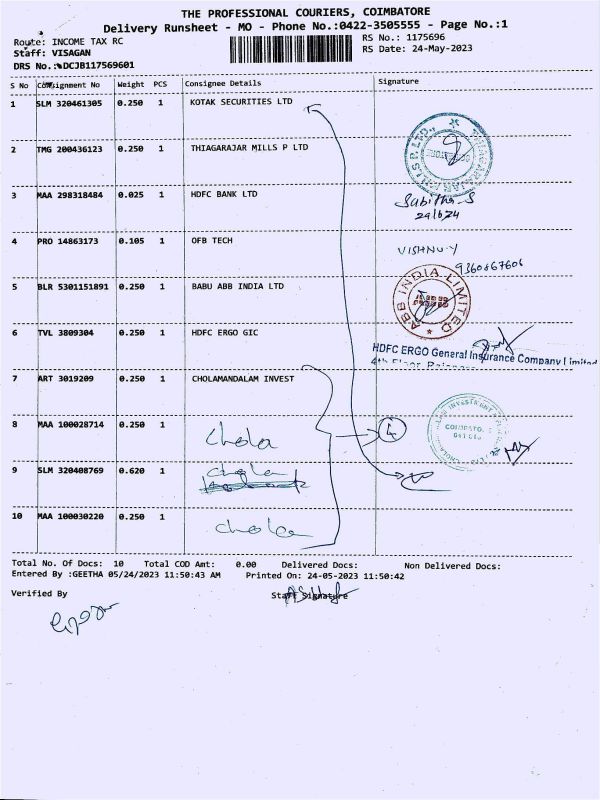 THE PROFESSIONAL COURIERS, COIMBATORE
Delivery Runsheet - MO - Phone No.:0422-3505555 - Page No.:1
Route: INCOME TAX RC
RS No.: 1175696
Staff: VISAGAN
RS Date: 24-May-2023
DRS No.: DCJB117569601
S No Consignment No Weight PCS Consignee Details Signature
1 SLM 320461305 0.250 1 KOTAK SECURITIES LTD
2 TMG 200436123 0.250 1 THIAGARAJAR MILLS P LTD
3 MAA 298318484 0.025 1 HDFC BANK LTD
Sabitha S
4 PRO 14863173 0.105 1 OFB TECH
VISHNU Y
9360867606
5 BLR 5301151891 0.250 1 BABU ABB INDIA LTD
ABB INDIA LIMITED
6 TVL 3809304 0.250 1 HDFC ERGO GIC
HDFC ERGO General Insurance Company Limited
4th Floor
7 ART 3019209 0.250 1 CHOLAMANDALAM INVEST
8 MAA 100028714 0.250 1 Chola
4
9 SLM 320408769 0.620 1 Chola
10 MAA 100030220 0.250 1 chola
Total No. Of Docs: 10 Total COD Amt: 0.00 Delivered Docs: Non Delivered Docs:
Entered By :GEETHA 05/24/2023 11:50:43 AM Printed On: 24-05-2023 11:50:42
Verified By Staff Signature